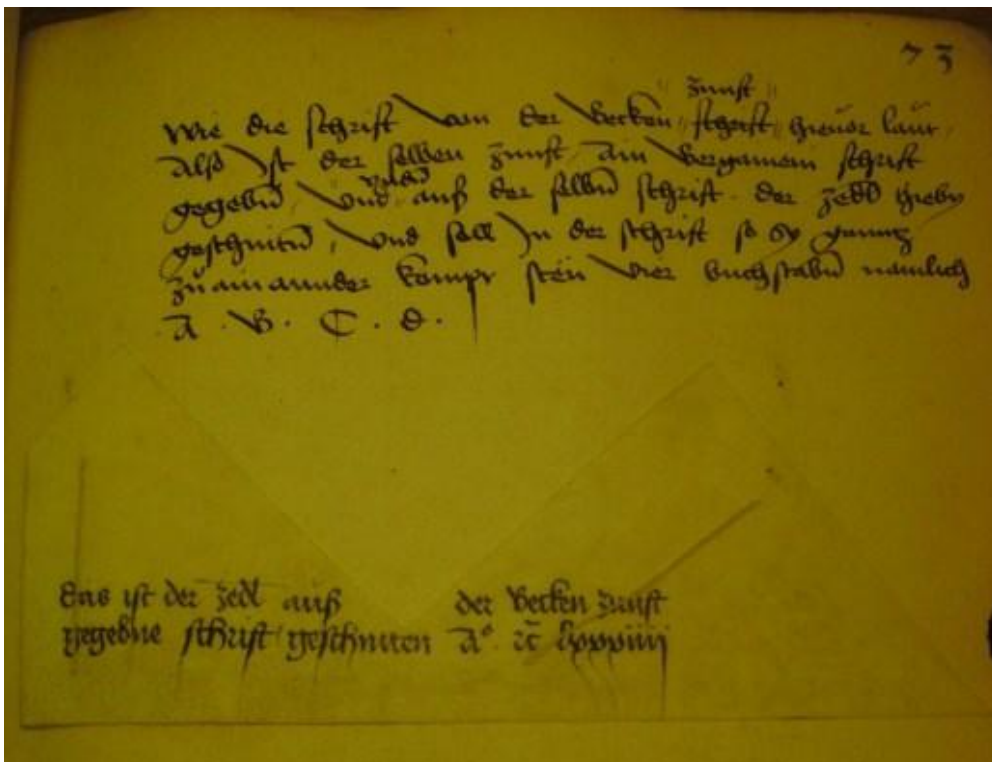 73
zunft
wie die schrift von der Becken schrift hieuor laut
Also Ist der selben zunft Ain Bergamein schrift
gegebn̄ vnd auß der selbn̄ schrift der zedl hieby
geschnitn̄ vnd soll In der schrift so sy ganntz
zů ainannder kompt sten vier buchstabn̄ namlich
A . B . C . d .
das ist der zedl auß der Becken zunft
gegebne schrift geschnitten Aº